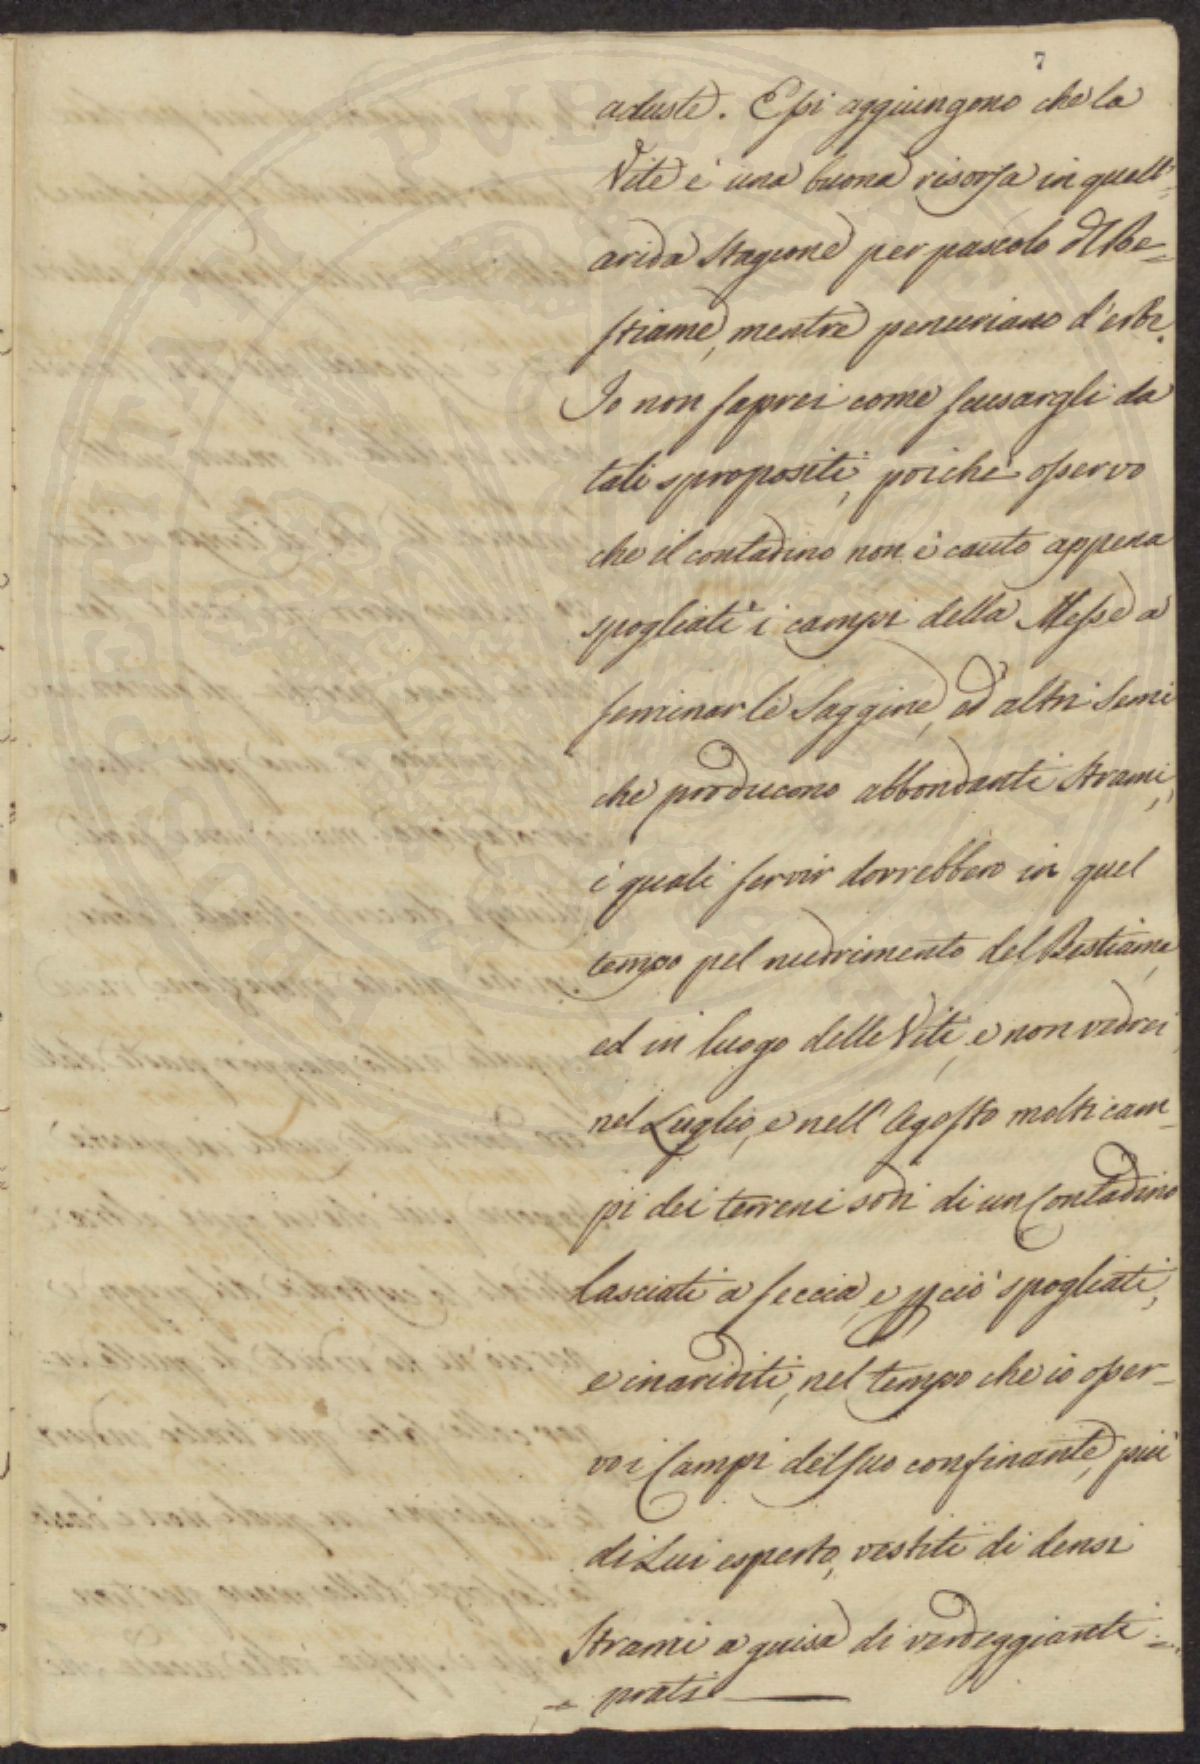 7
aduste. Essi aggiungono che la
Vite è una buona risorsa in quell'
arida Stagione per pascolo del Be=
stiame, mentre penuriano d'erbe.
Io non saprei come scusargli da
tali spropositi, poichè osservo
che il contadino non è cauto appena
spogliati i campi della Messe a
seminar le Saggine, ed altri Semi
che producono abbondanti Strami,
i quali servir dovrebbero in quel
tempo pel nudrimento del Bestiame
ed in luogo delle Viti, e non vedrei
nel Luglio, e nell'Agosto molti cam=
pi dei terreni sodi di un Contadino
lasciati a seccia, e pciò spogliati,
e inariditi, nel tempo che io osser=
vo i Campi del suo confinante, più
di Lui esperto, vestiti di densi
Strami a guisa di verdeggianti =
= prati